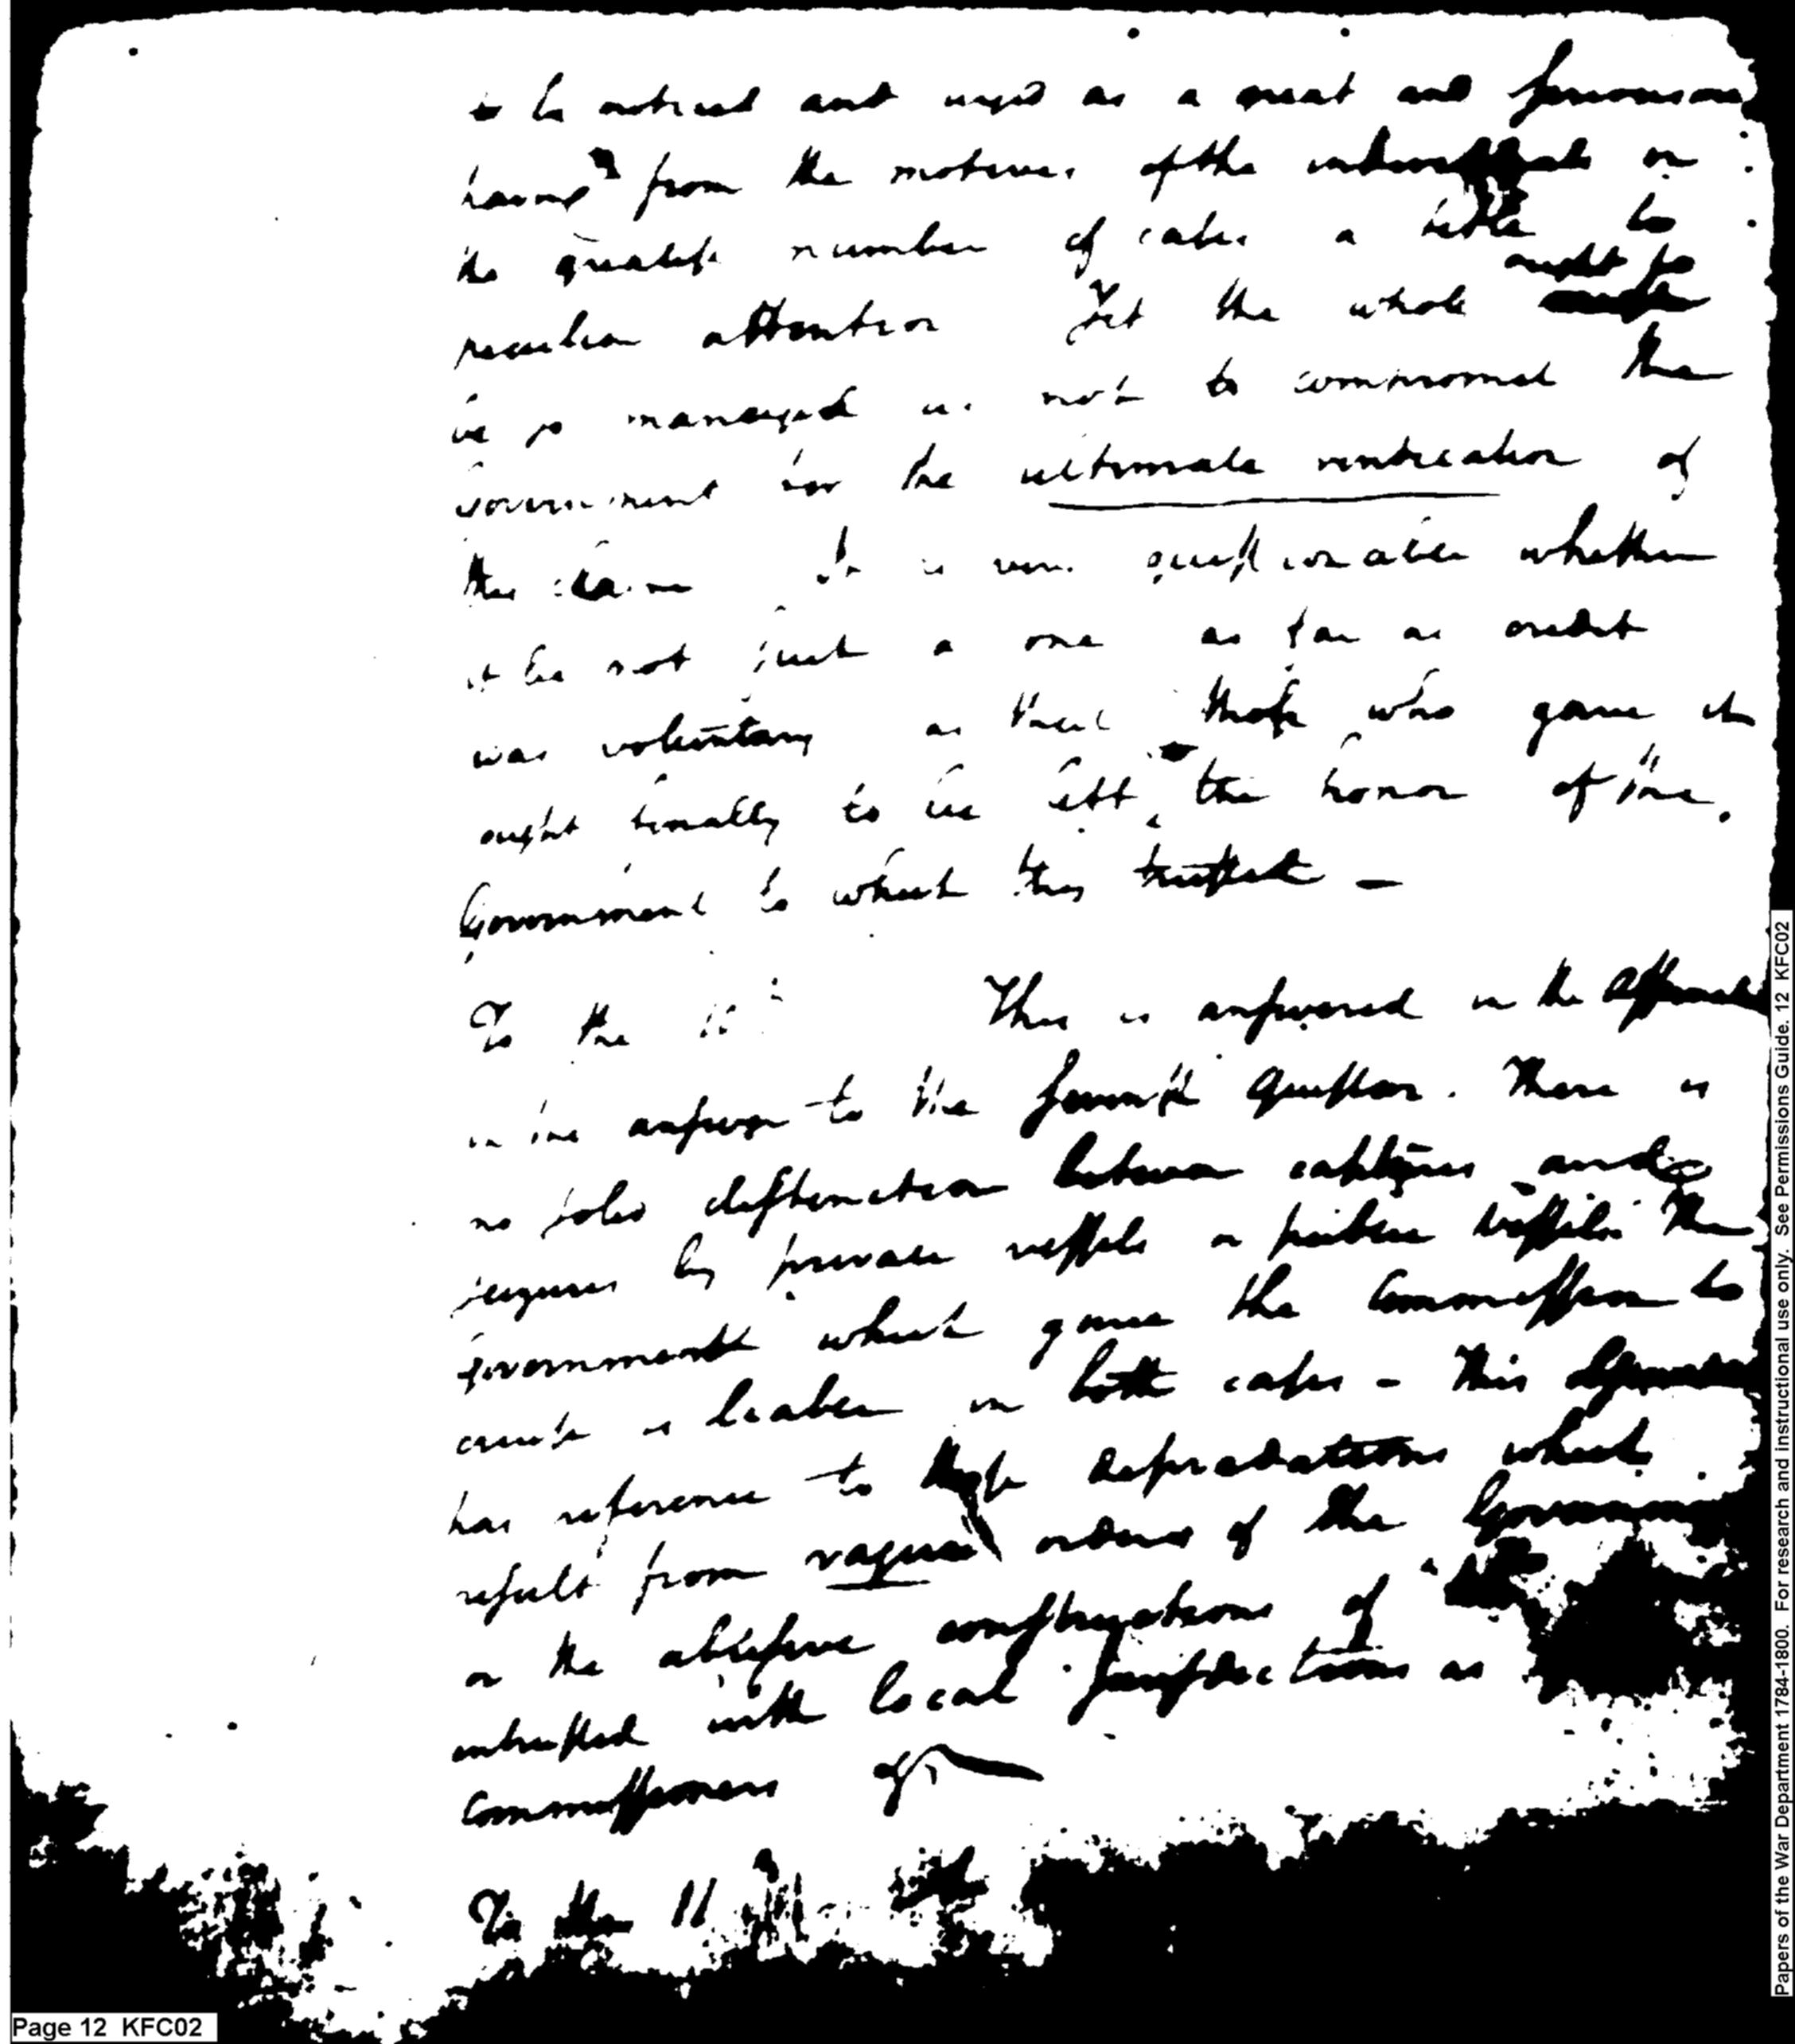 to be noticed and urged as a great and
having from the motives of the or
the greatest number of cases a title to
peculiar attention Yet the whole ought to
be so managed as not to compromit the
Government for the ultimate vindication of
the claim It is very questionable whether
it be not just a one as far as credit
was voluntary as that those who gave it
ought finally to be left the honor of the
Government to which they trusted —
To the 10 This is answered in the affirmative
in the answer to the fourth Question. There is
no solid distinction between captures and
seizures by private vessels or public vessels The
government which gave the Commission to
cruise is liable in both cases - This
has reference to those depredations which
result from vague orders of the Government
or the abusive constructions of
intrusted with local jurisdictions as
Commissioners &c
To the 11
Page 12 KFC02
Papers of the War Department 1784-1800. For research and instructional use only. See Permissions Guide. 12 KFC02